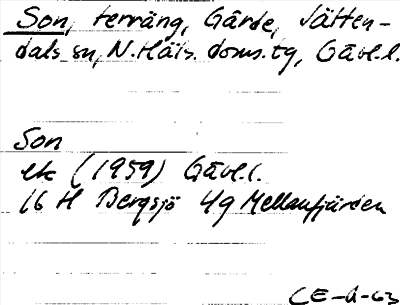 Son, terräng, Gårde, Jätten-
dals sn, N. Häls. doms. tg, Gävl. l.
Son
ek (1959) Gävl. l.
16 H Bergsjö 49 Mellanfjärden
CE-a-63